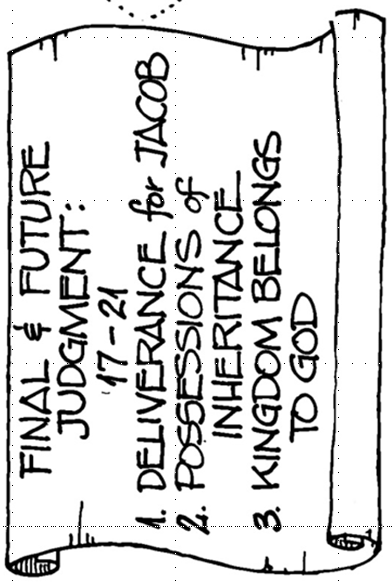 FINAL & FUTURE
JUDGMENT:
17-21
1. DELIVERANCE for JACOB
2. POSSESSIONS of
INHERITANCE
3. KINGDOM BELONGS
TO GOD